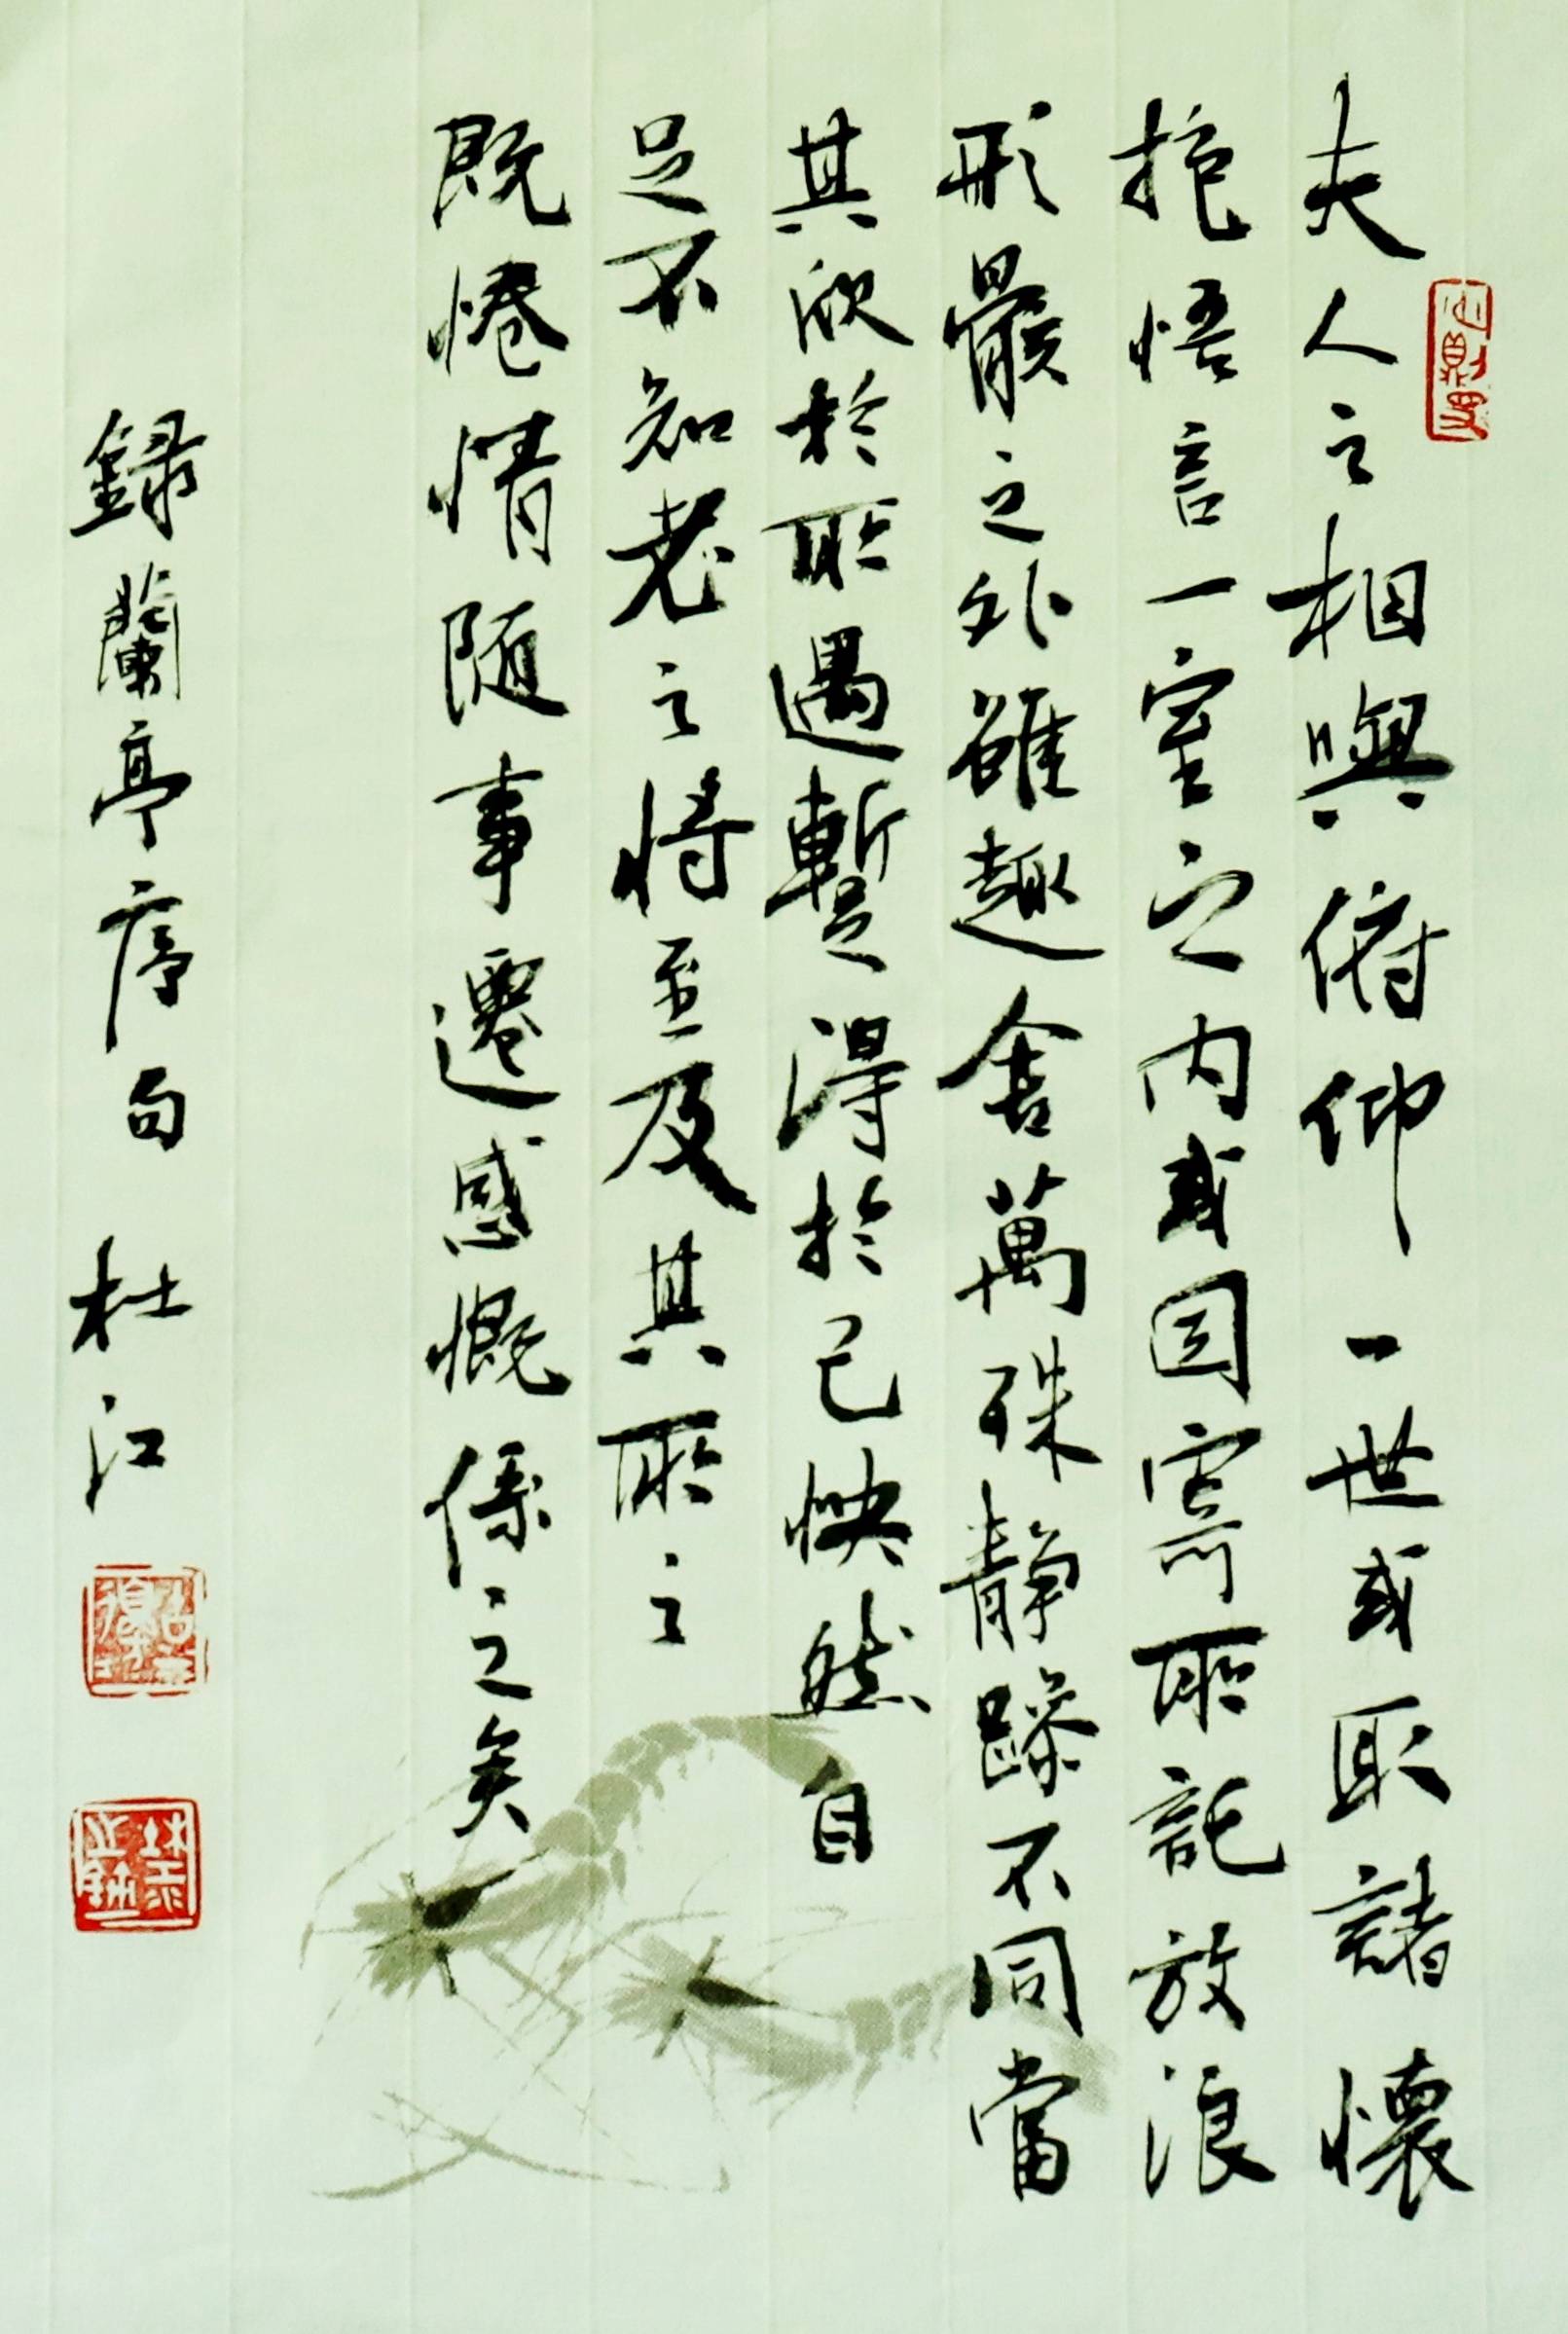 夫人之相與俯仰一世或取諸懷
抱悟言一室之内或因寄所託放浪
形骸之外雖趣舍萬殊静躁不同當
其欣於所遇蹔得於己怏然自
足不知老之將至及其所之
既惓情随事遷感慨係之矣
録蘭亭序句 杜江